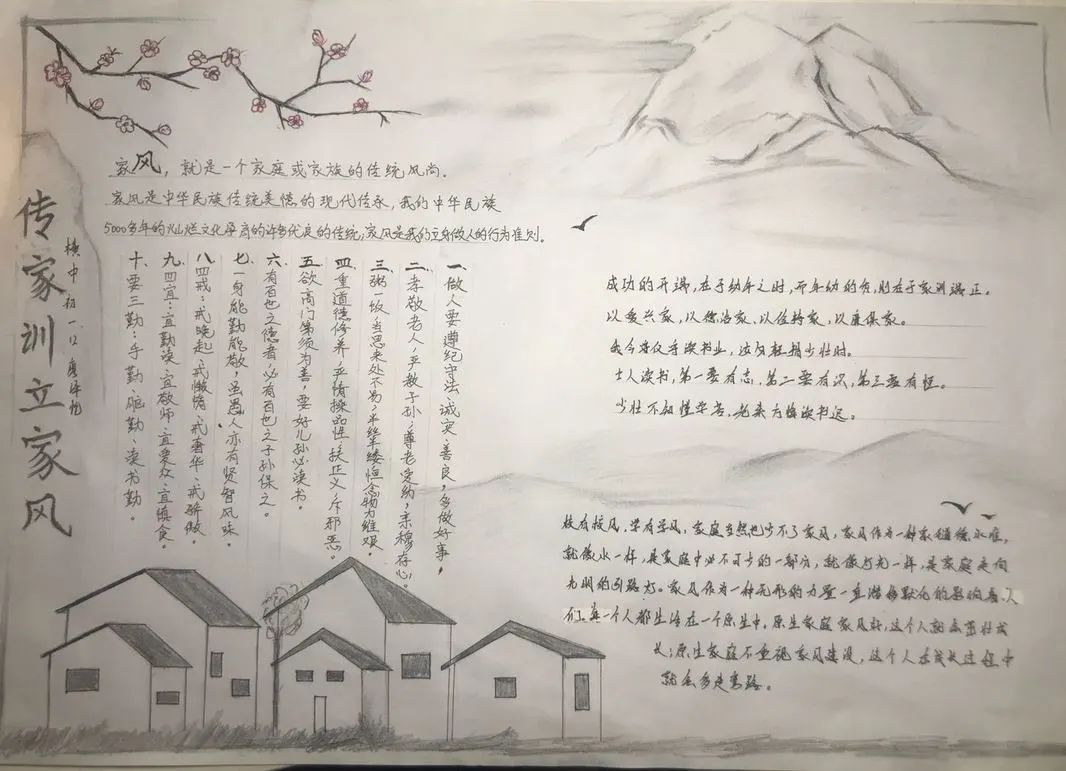 传家训立家风
横中初一.12
家风，就是一个家庭或家族的传统风尚.
家风是中华民族传统美德的现代传承，我们中华民族
5000多年的灿烂文化孕育的许多优良的传统，家风是我们立身做人的行为准则。
一、做人要遵纪守法，诚实善良，多做好事，
二、孝敬老人，严教子孙，尊老爱幼，亲穆存心。
三、粥一饭，当思来处不易，半丝半缕恒念物力维艰。
四、重道德修养，严情操品性，扶正义，斥邪恶。
五、欲高门第须为善，要好儿孙必读书。
六、有百世之德者，必有百世之子孙保之。
七、一身能勤能敬，虽愚人亦有贤智风味。
八、四戒：戒晚起，戒懒惰，戒奢华，戒骄傲。
九、四宜：宜勤读，宜敬师，宜爱众，宜慎食。
十、要三勤：手勤，脚勤，读书勤。
成功的开端，在于幼年之时，而年幼的贞，则在于家训端正。
以爱兴家，以德治家、以俭持家，以廉保家。
我今仅守读书业，
士人读书，第一要有志，第二要有识，第三要有恒。
少壮不知惜学苦，老来方悔读书迟。
校有校风，学有学风，家庭当然也少不了家风，家风作为一种家道德水准，
就像水一样，是家庭中必不可少的一部分，就像灯光一样，是家庭走向
光明的引路灯。家风作为一种无形的力量一直潜移默化的影响着人
们。每一个人都生活在一个原生中，原生家庭家风好，这个人就会茁壮成
长；原生家庭不重视家风建设，这个人在成长过程中
就会多走弯路。